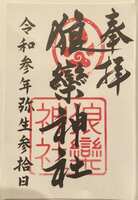 奉拝
神社
令和参年弥生参拾日